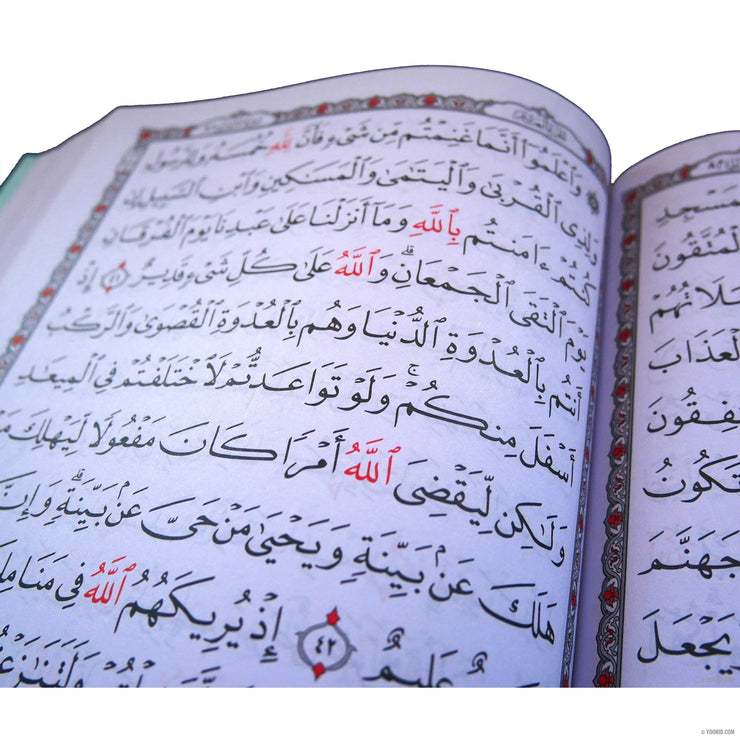 لۡمَسۡجِدِ
لۡمُتَّقُونَ
لَاتُهُمۡ
لۡعَذَابَ
فِقُونَ
تَكُونُ
جَهَنَّمَ
يَجۡعَلَ
وَٱعۡلَمُوٓاْ أَنَّمَا غَنِمۡتُم مِّن شَيۡءٖ فَأَنَّ لِلَّهِ خُمُسَهُۥ وَلِلرَّسُولِ
وَلِذِي ٱلۡقُرۡبَىٰ وَٱلۡيَتَٰمَىٰ وَٱلۡمَسَٰكِينِ وَٱبۡنِ ٱلسَّبِيلِ إِن
كُنتُمۡ ءَامَنتُم بِٱللَّهِ وَمَآ أَنزَلۡنَا عَلَىٰ عَبۡدِنَا يَوۡمَ ٱلۡفُرۡقَانِ
يَوۡمَ ٱلۡتَقَى ٱلۡجَمۡعَانِۗ وَٱللَّهُ عَلَىٰ كُلِّ شَيۡءٖ قَدِيرٌ ٤١ إِذۡ
أَنتُم بِٱلۡعُدۡوَةِ ٱلدُّنۡيَا وَهُم بِٱلۡعُدۡوَةِ ٱلۡقُصۡوَىٰ وَٱلرَّكۡبُ
أَسۡفَلَ مِنكُمۡۚ وَلَوۡ تَوَاعَدتُّمۡ لَٱخۡتَلَفۡتُمۡ فِي ٱلۡمِيعَٰدِ
وَلَٰكِن لِّيَقۡضِيَ ٱللَّهُ أَمۡرٗا كَانَ مَفۡعُولٗا لِّيَهۡلِكَ مَنۡ
هَلَكَ عَنۢ بَيِّنَةٖ وَيَحۡيَىٰ مَنۡ حَيَّ عَنۢ بَيِّنَةٖۗ وَإِنَّ
عَلِيمٌ ٤٢ إِذۡ يُرِيكَهُمُ ٱللَّهُ فِي مَنَامِ
وَلَتَنَٰزَعۡ
© YOORID.COM